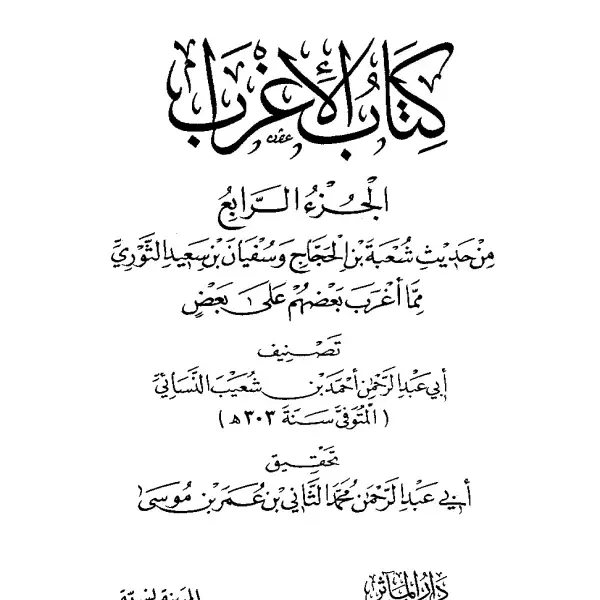 كِتَابُ الإِغْرَابِ
الجُزءُ الرَّابِعُ
مِنْ حَدِيْثِ شُعْبَةَ بْنِ الحَجَّاجِ وَسُفْيَانَ بْنِ سَعِيدِ الثَّوْرِيِّ
مِمَّا أَغْرَبَ بَعْضُهُمْ عَلَى بَعْضٍ
تَصْنِيف
أَبِي عَبْدِ الرَّحْمٰنِ أَحْمَدَ بْنِ شُعَيْبَ النَّسَائِيِّ
( المُتَوَفَّى سَنَةَ ٣٠٣ هـ )
تَحْقِيق
أَبِي عَبْدِ الرَّحْمٰنِ مُحَمَّدَ الثَّانِي بْنِ عُمَرَ بْنِ مُوسَى
دَارُ المَآثِرِ